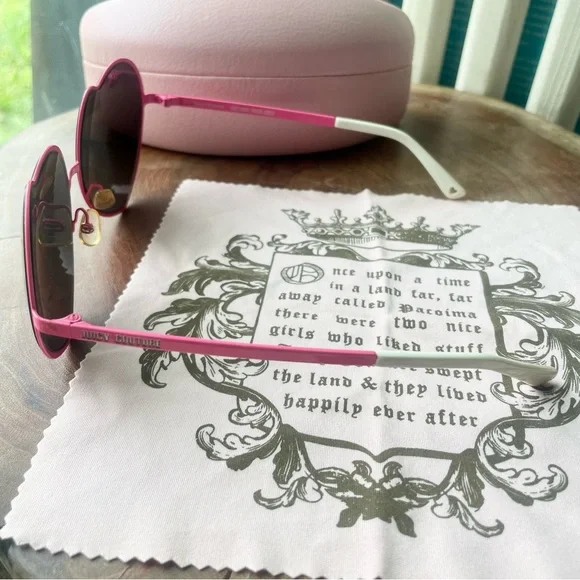 Once upon a time
in a land far, far
away called Pacoima
there were two nice
girls who liked stuff
swept
the land & they lived
happily ever after
JUICY COUTURE